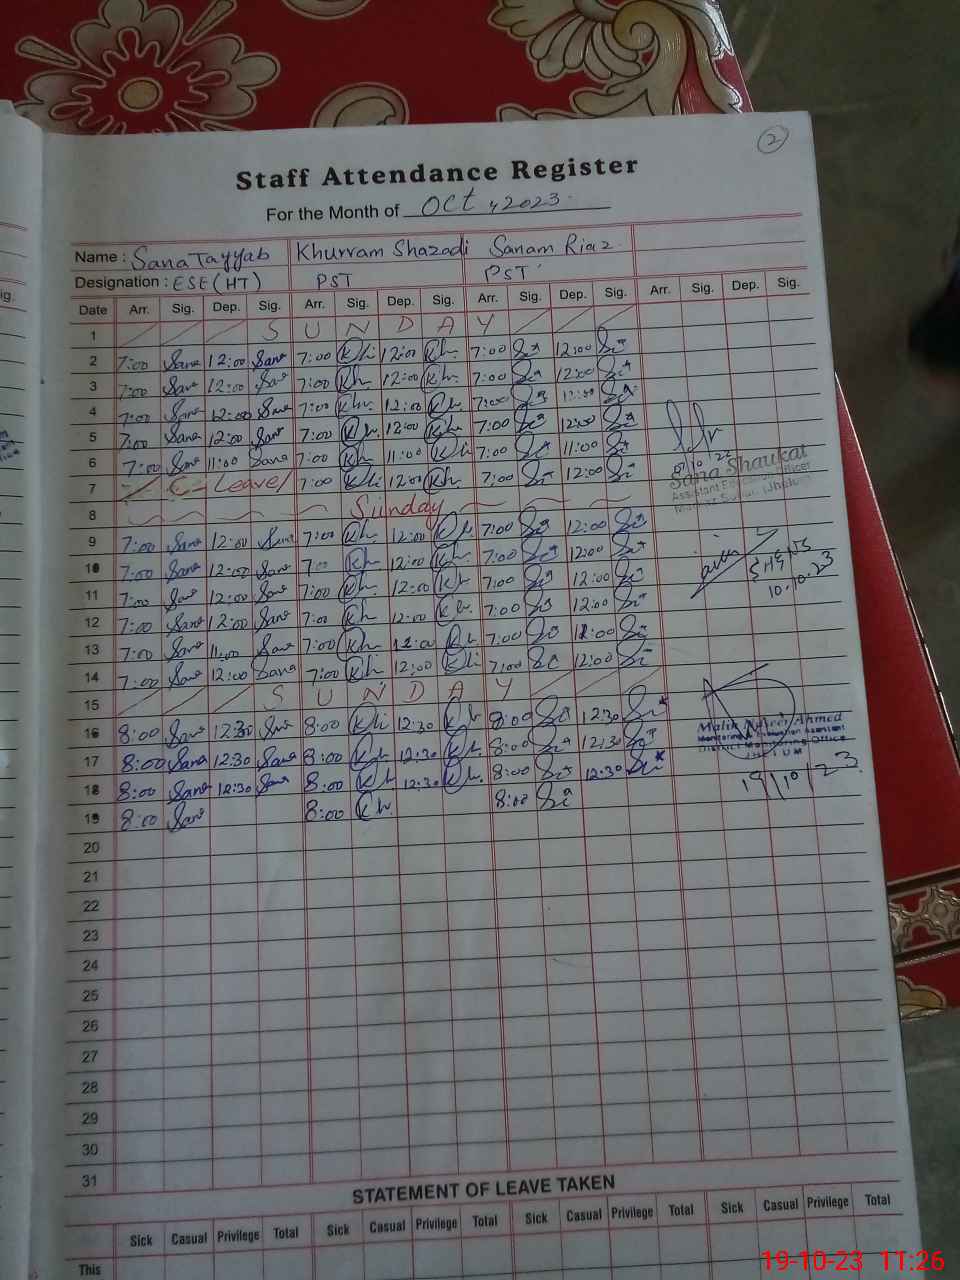 2
Staff Attendance Register
For the Month of Oct, 2023.
Name : Sana Tayyab Khurram Shazadi Sanam Riaz.
Designation : ESE (HT) PST PST
Date Arr. Sig. Dep. Sig. Arr. Sig. Dep. Sig. Arr. Sig. Dep. Sig. Arr. Sig. Dep. Sig.
1 S U N D A Y
2 7:00 Sana 12:00 Sana 7:00 Kh 12:00 Kh. 7:00 12:00
3 7:00 Sana 12:00 Sana 7:00 Kh 12:00 Kh. 7:00 12:00
4 7:00 Sana 12:00 Sana 7:00 Kh 12:00 Kh. 7:00 12:00
5 7:00 Sana 12:00 Sana 7:00 Kh. 12:00 Kh 7:00 12:00
6 7:00 Sana 11:00 Sana 7:00 Kh 11:00 Kh 7:00 11:00
7 C- Leave 7:00 Kh 12:00 Kh. 7:00 12:00
Sana Shaukat
Assistant Education Officer
8 Sunday
9 7:00 Sana 12:00 Sana 7:00 Kh 12:00 Kh. 7:00 12:00
10 7:00 Sana 12:00 Sana 7:00 Kh 12:00 Kh 7:00 12:00
11 7:00 Sana 12:00 Sana 7:00 Kh 12:00 Kh 7:00 12:00
10.10.23
12 7:00 Sana 12:00 Sana 7:00 Kh 12:00 Kh. 7:00 12:00
13 7:00 Sana 11:00 Sana 7:00 Kh 12:00 Kh 7:00 12:00
14 7:00 Sana 12:00 Sana 7:00 Kh 12:00 Kh 7:00 12:00
15 S U N D A Y
16 8:00 Sana 12:30 Sana 8:00 Kh 12:30 Kh 8:00 12:30
Malik Naseer Ahmed
Monitoring & Evaluation Assistant
District Monitoring Office
JHELUM
17 8:00 Sana 12:30 Sana 8:00 Kh 12:30 Kh. 8:00 12:30
18 8:00 Sana 12:30 Sana 8:00 Kh 12:30 Kh. 8:00 12:30
19/10/23
19 8:00 Sana 8:00 Kh. 8:00
20
21
22
23
24
25
26
27
28
29
30
31
STATEMENT OF LEAVE TAKEN
Sick Casual Privilege Total Sick Casual Privilege Total Sick Casual Privilege Total Sick Casual Privilege Total
This
19-10-23 11:26